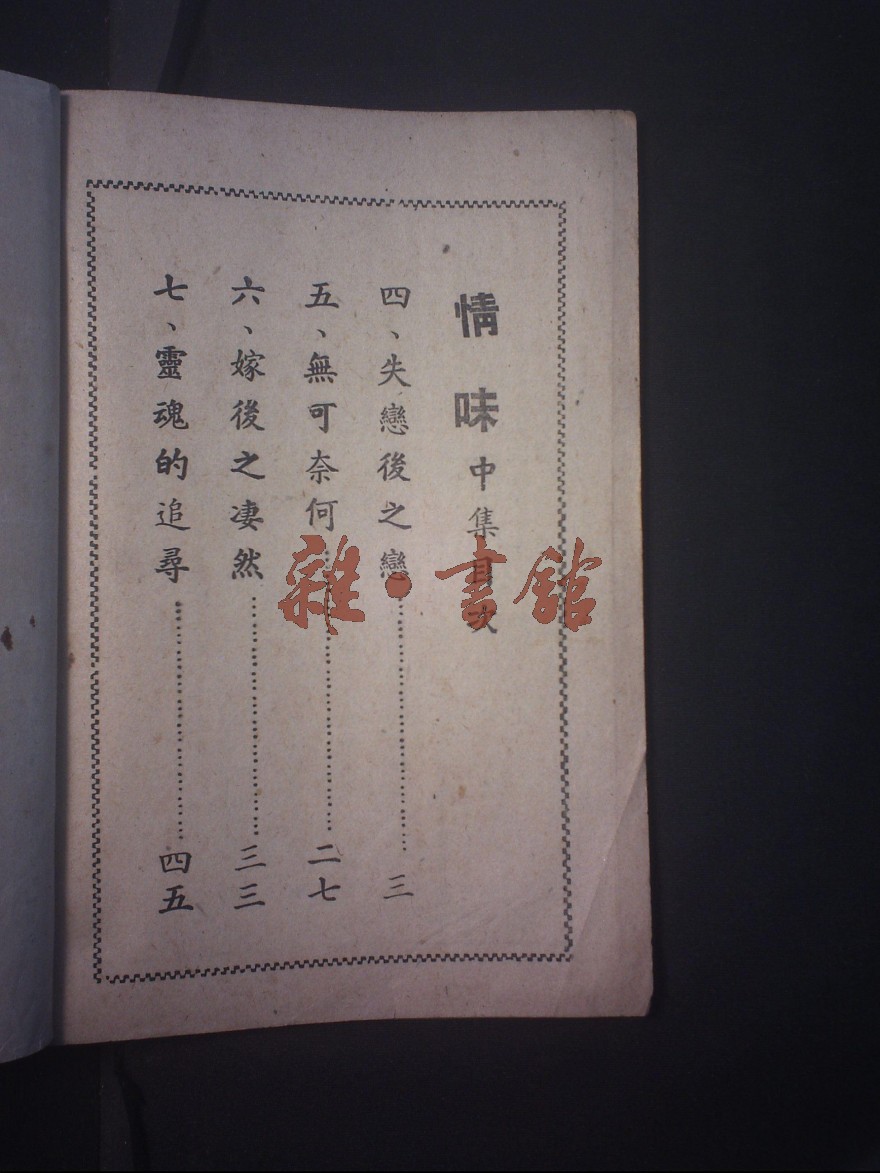 情味中集目次
四、失戀後之戀…………三
五、無可奈何…………二七
六、嫁後之凄然…………三三
七、靈魂的追尋…………四五
雜·書館